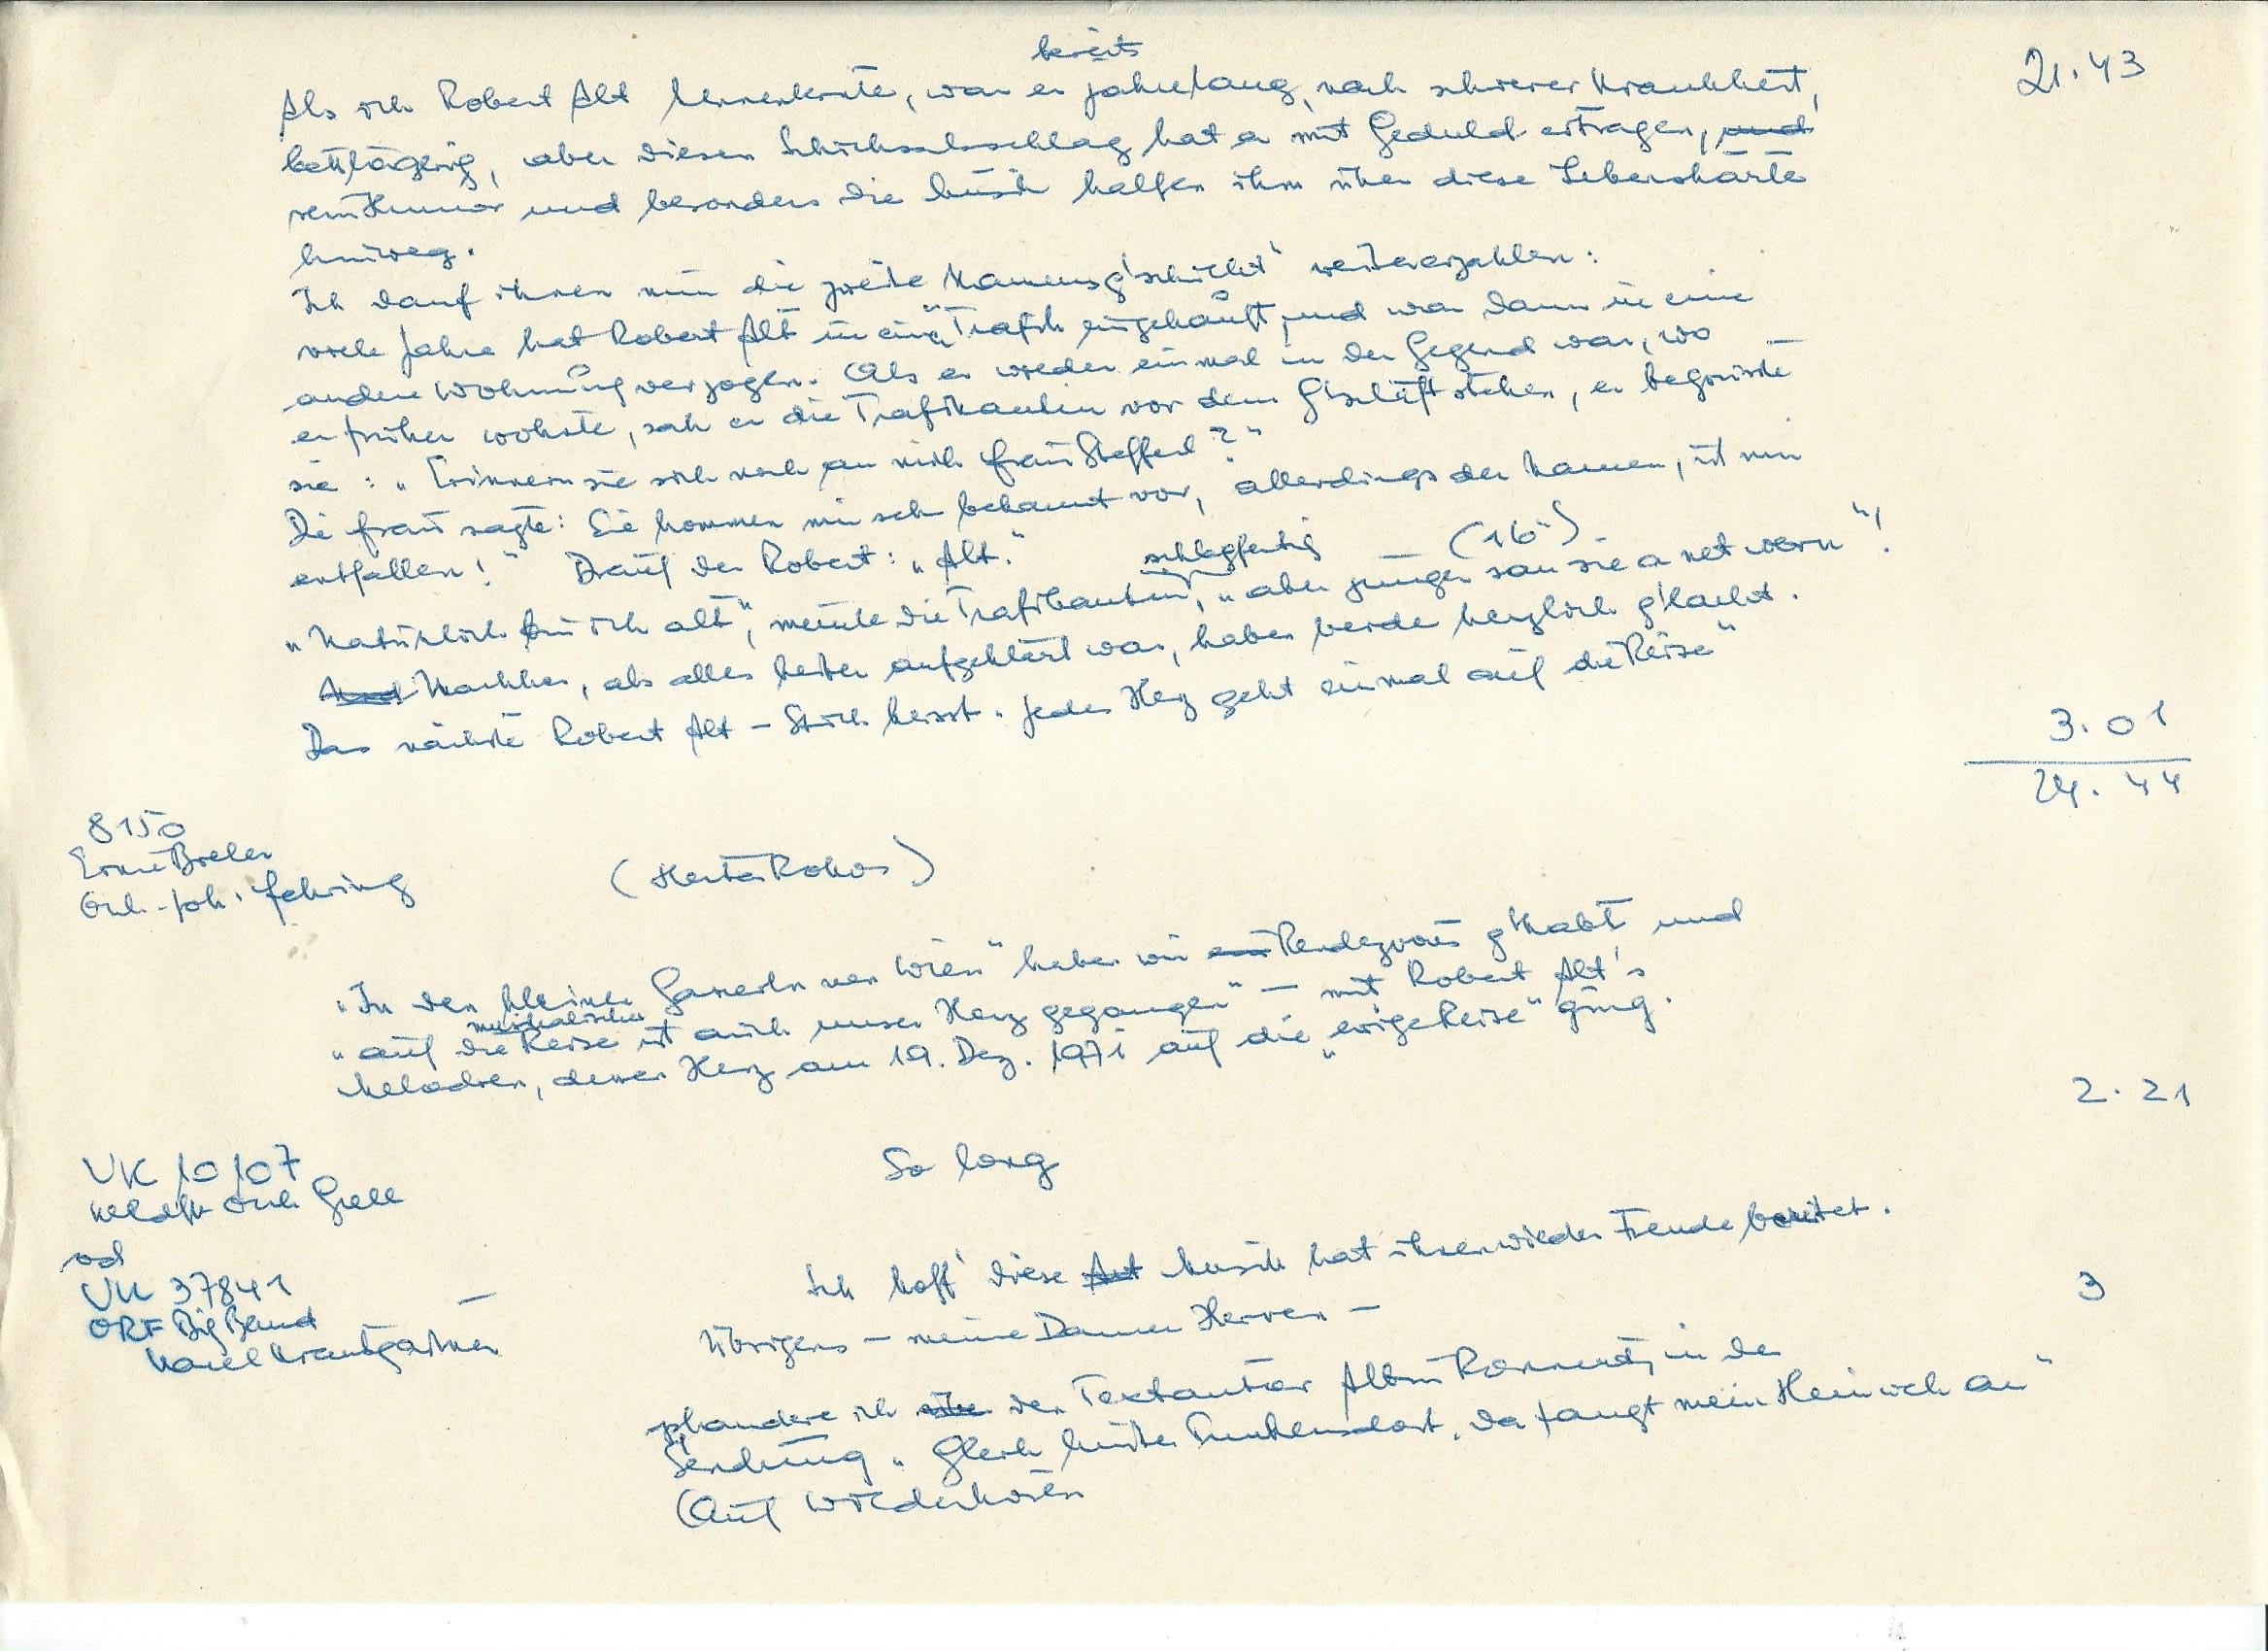 bereits
21.43
Als ich Robert Alt kennenlernte, war er jahrelang, nach schwerer Krankheit,
bettlägerig, aber diesen Schicksalsschlag hat er mit Geduld ertragen, und
sein Humor und besonders die Musik halfen ihm über diese Lebenshärte
hinweg.
Ich darf ihnen nun die zweite Namensg'schicht" weitererzählen:
viele Jahre hat Robert Alt in einer Trafik eingekauft, und war dann in eine
andere Wohnung verzogen. Als er wieder einmal in der Gegend war, wo
er früher wohnte, sah er die Trafikantin vor dem G'schäft stehen, er begrüsste
sie: „Erinnern sie sich noch an mich Frau Stefferl?"
Die Frau sagte: Sie kommen mir sehr bekannt vor, allerdings der Namen, ist mir
entfallen!" Drauf der Robert: „Alt."
schlagfertig
(16")
„Natürlich bin ich alt", meinte die Trafikantin, „aber jünger san sie a net worn"!
Und Nachher, als alles heiter aufgeklärt war, haben beide herzlich g'lacht.
Das nächste Robert Alt – Stück heisst „Jedes Herz geht einmal auf die Reise"
3.01
24.44
8150
Erni Bieler
Orch. Joh. Fehring
(Herta Kokos)
„In den kleinen Gasserln von Wien" haben wir ein Rendezvous g'habt und
musikalische
„auf die Reise ist auch unser Herz gegangen" – mit Robert Alt's
Melodien, dessen Herz am 19. Dez. 1971 auf die „ewige Reise" ging.
2.21
So long
UK 10107
Orch
od
UK 37841
ORF Big Band
Karel Krautgartner
Ich hoff' diese Art Musik hat ihnen wieder Freude bereitet.
3
Übrigens – meine Damen Herren –
plaudere ich über den Textautor Albin Ronnert, in der
Sendung „Gleich hinter da fangt mein Heimweh an"
(Auf Wiederhören